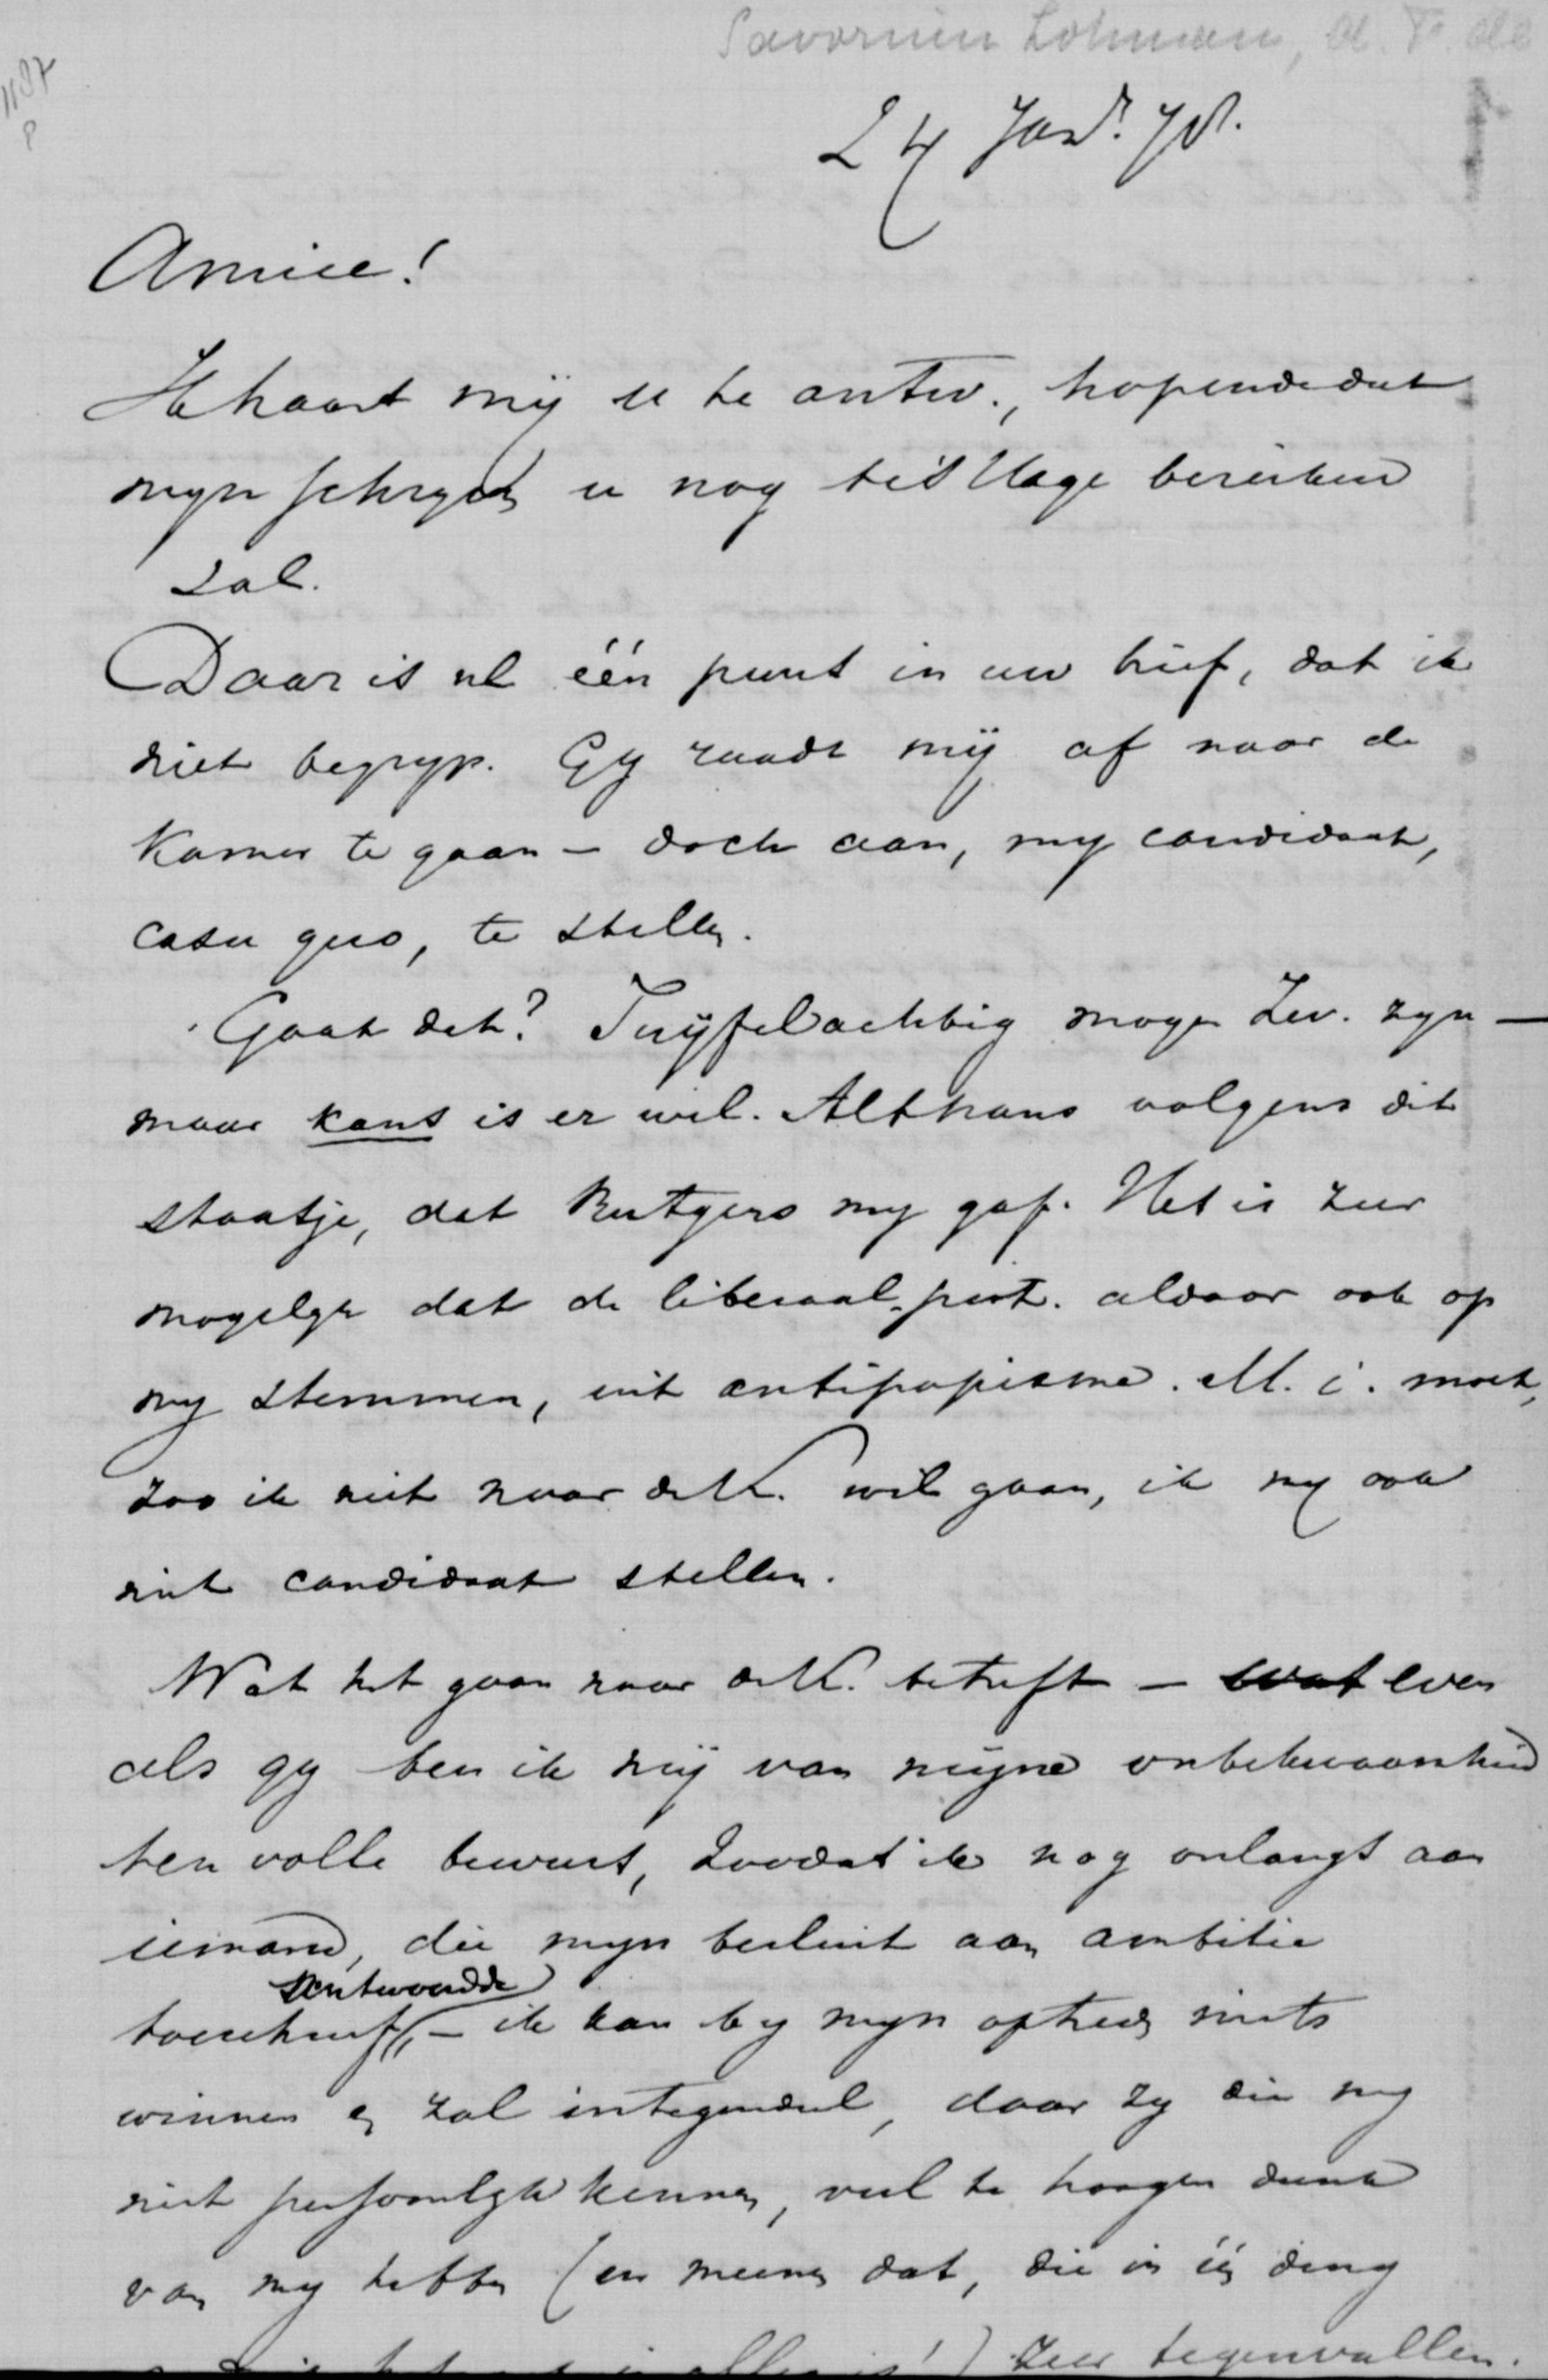 Savornin Lohman, A. F. de
1187
P
24 Janr. 78.
Amice!
Ik haast mij u te antw., hopende dat
myn schryven u nog te's Hage bereiken
zal.
Daar is nl één punt in uw brief, dat ik
niet begryp. Gy raadt mij af naar de
Kamer te gaan – doch aan, my candidaat,
casu quo, te stellen.
Gaat dat? Twijfelachtig moge Zev. zyn –
maar kans is er wel. Althans volgens dit
staatje, dat Rutgers my gaf. Het is zeer
mogelyk dat de liberaal-prot. aldaar ook op
my stemmen, uit antipapisme. M. i. moet,
zoo ik niet naar de K. wil gaan, ik my ook
niet candidaat stellen.
Wat het gaan naar de K. betreft – wat even
als gy ben ik mij van mijne onbekwaamheid
ten volle bewust, zoodat ik nog onlangs aan
iemand, die myn besluit aan ambitie
antwoordde
toeschreef, – ik kan by myn optreden niets
winnen en zal integendeel, daar zy die my
niet persoonlyk kennen, veel te hoogen dunk
van my hebben (en meenen dat, die in één ding
) zeer tegenvallen.